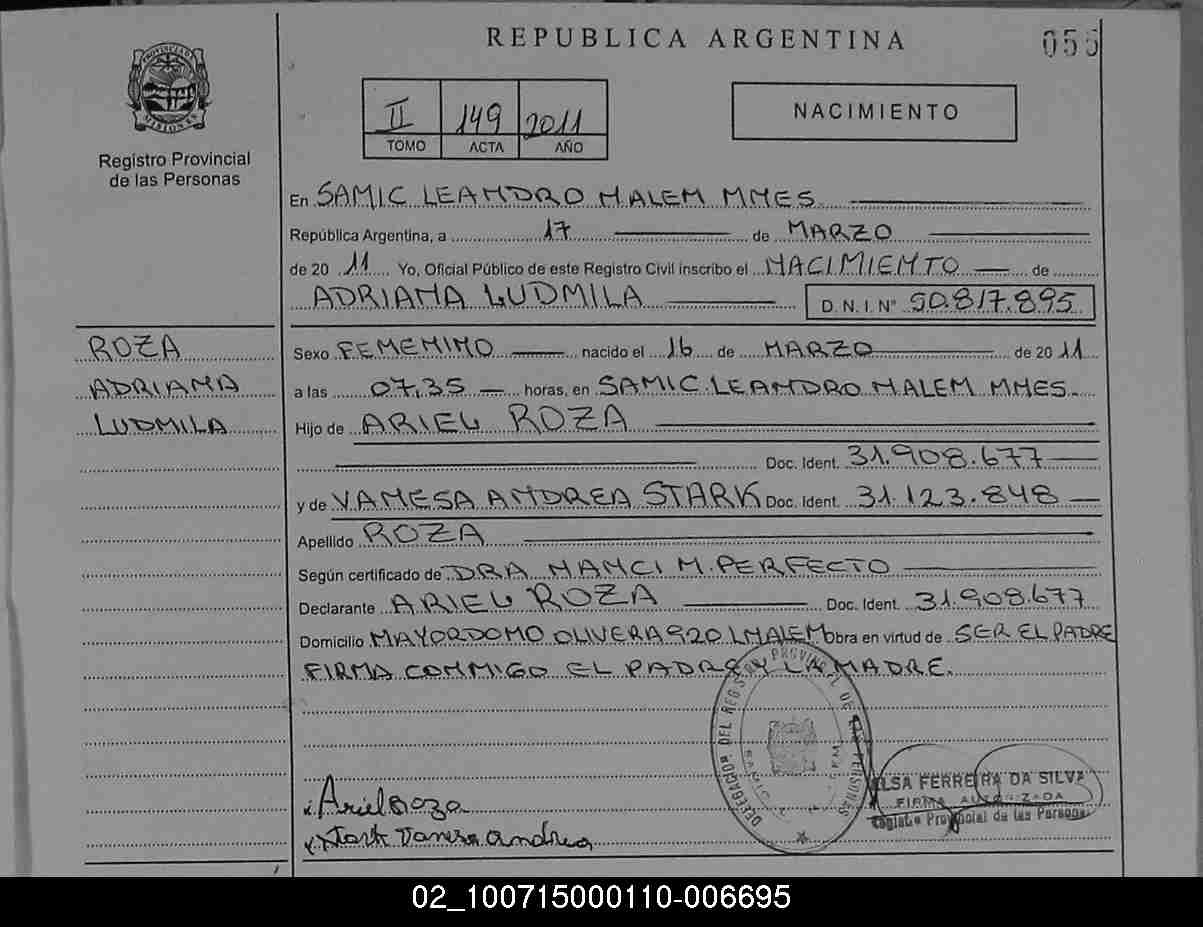 REPUBLICA ARGENTINA
055
PROVINCIA DE MISIONES
Registro Provincial
de las Personas
II 149 2011
TOMO ACTA AÑO
NACIMIENTO
En SAMIC LEANDRO N ALEM MNES
República Argentina, a 17 de MARZO
de 20 11 Yo, Oficial Público de este Registro Civil inscribo el NACIMIENTO de
ADRIANA LUDMILA D. N. I. N° 50.817.895
ROZA
ADRIANA
LUDMILA
Sexo FEMENINO nacido el 16 de MARZO de 20 11
a las 07,35 horas, en SAMIC LEANDRO N ALEM MNES.
Hijo de ARIEL ROZA
Doc. Ident. 31.908.677
y de VANESA ANDREA STARK Doc. Ident. 31.123.848
Apellido ROZA
Según certificado de DRA NANCI M. PERFECTO
Declarante ARIEL ROZA Doc. Ident. 31.908.677
Domicilio MAYORDOMO OLIVERA 920 LNALEM Obra en virtud de SER EL PADRE
FIRMA CONMIGO EL PADRE Y LA MADRE.
DELEGACION DEL REGISTRO PROVINCIAL DE LAS PERSONAS
Ariel Roza
Stark Vanesa Andrea
ELSA FERREIRA DA SILVA
FIRMA AUTORIZADA
Registro Provincial de las Personas
02_100715000110-006695